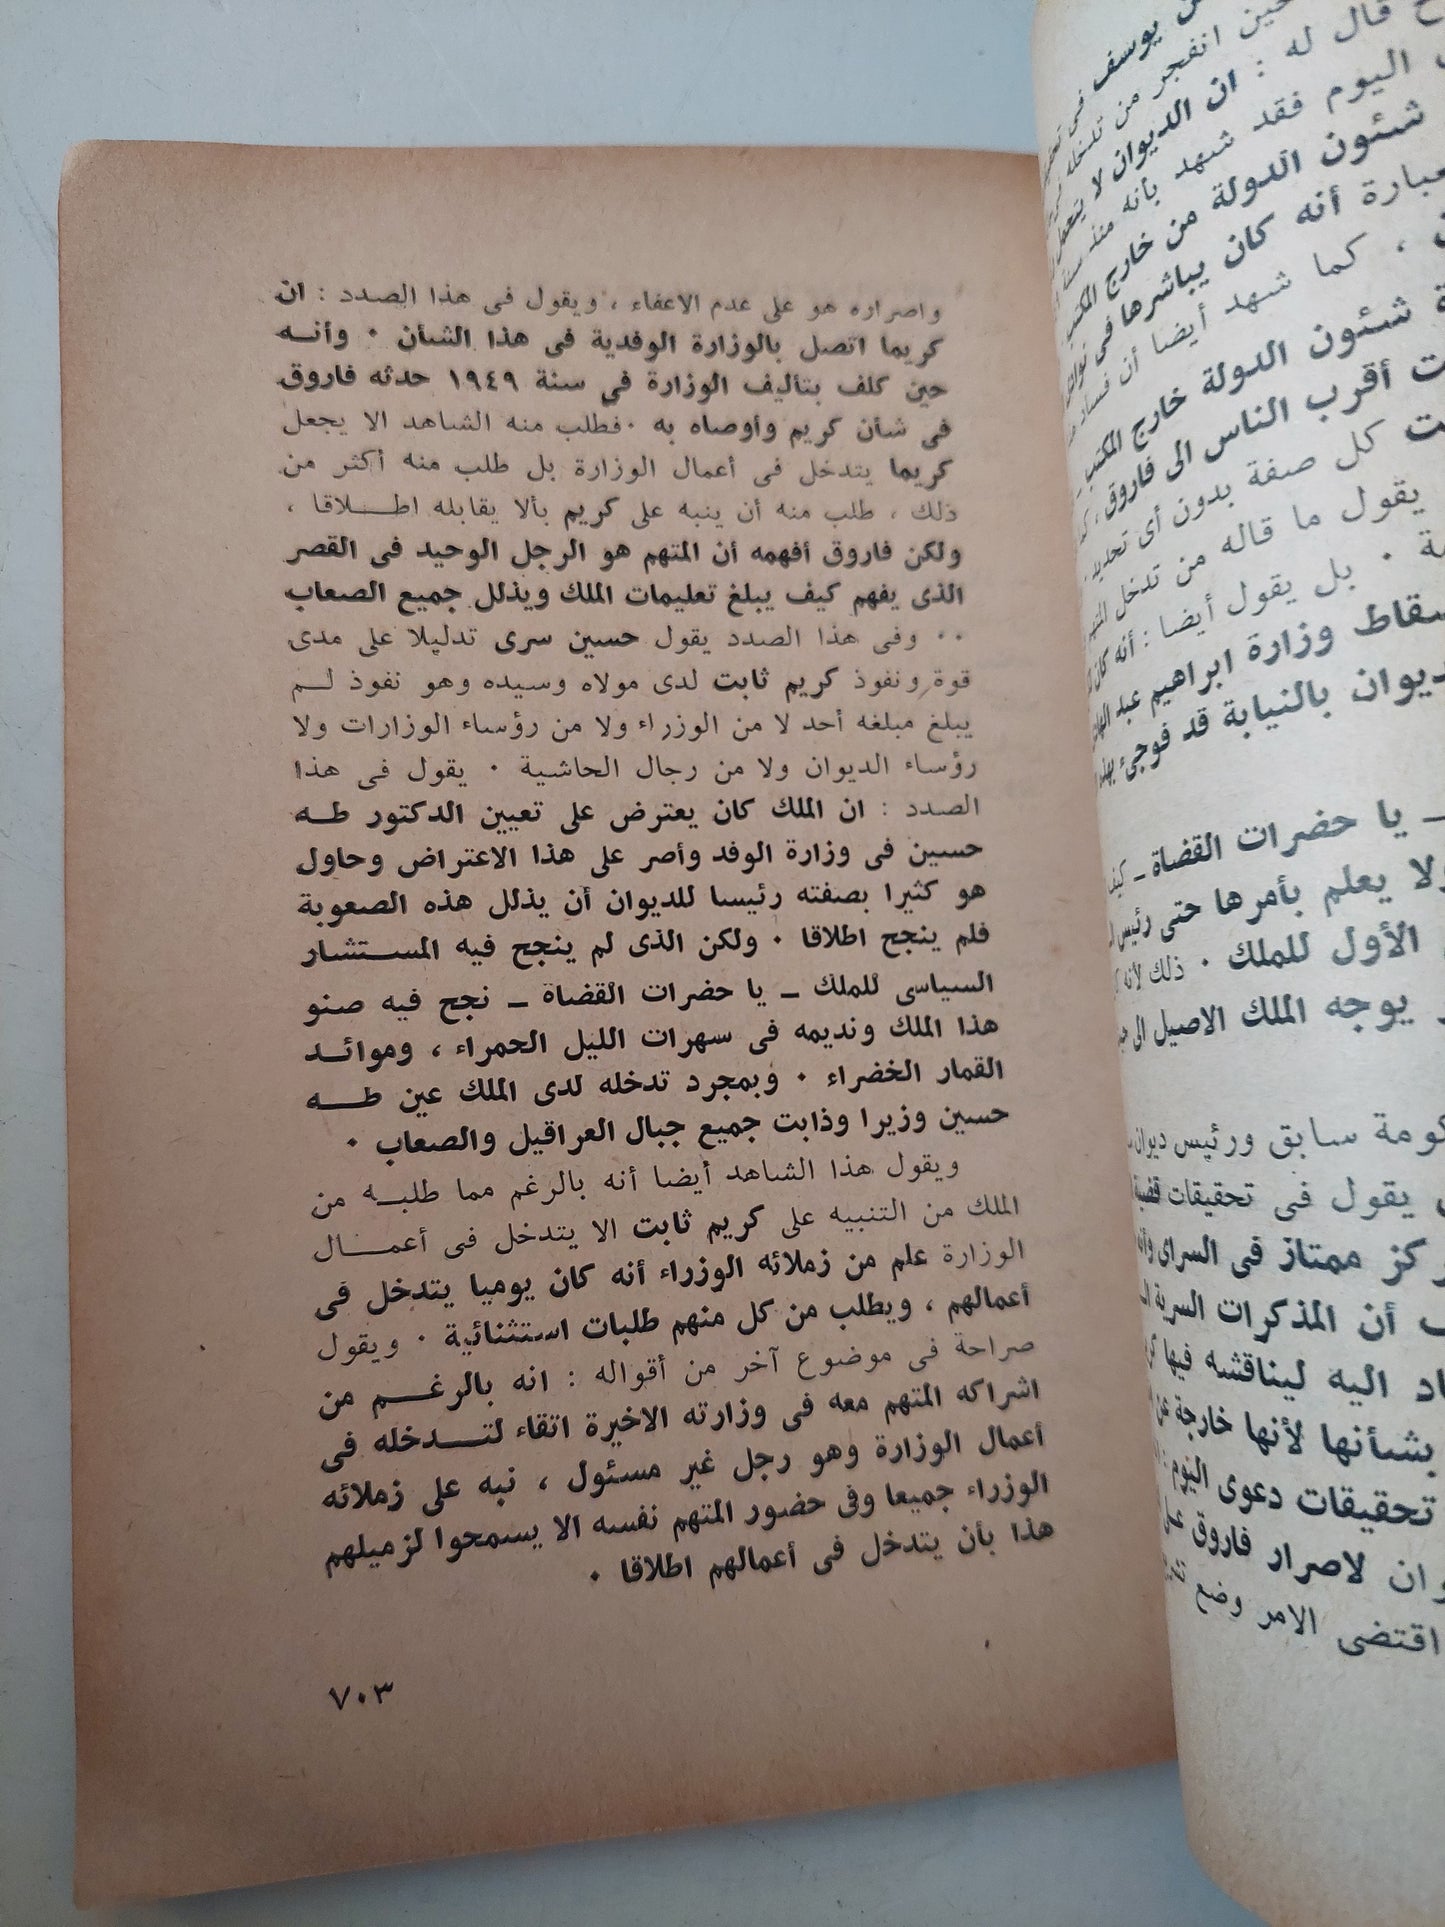 واصراره هو على عدم الاعفاء ، ويقول فى هذا الصدد : ان
كريما اتصل بالوزارة الوفدية فى هذا الشأن ٠ وأنـه
حين كلف بتأليف الوزارة فى سنة ١٩٤٩ حدثه فاروق
فى شأن كريم وأوصاه به ٠ فطلب منه الشاهد الا يجعل
كريما يتدخل فى أعمال الوزارة بل طلب منه أكثر من
ذلك ، طلب منه أن ينبه على كريم بألا يقابله اطـلاقا ،
ولكن فاروق أفهمه أن المتهم هو الرجل الوحيد فى القصر
الذى يفهم كيف يبلغ تعليمات الملك ويذلل جميع الصعاب
٠٠ وفى هذا الصدد يقول حسين سرى تدليلا على مدى
قوة ونفوذ كريم ثابت لدى مولاه وسيده وهو نفوذ لـم
يبلغ مبلغه أحد لا من الوزراء ولا من رؤساء الوزارات ولا
رؤساء الديوان ولا من رجال الحاشية ٠ يقول فى هذا
الصدد : ان الملك كان يعترض على تعيين الدكتور طـه
حسين فى وزارة الوفد وأصر على هذا الاعتراض وحاول
هو كثيرا بصفته رئيسا للديوان أن يذلل هذه الصعوبة
فلم ينجح اطلاقا ٠ ولكن الذى لم ينجح فيه المسـتشار
السياسى للملك ـ يا حضرات القضاة ـ نجح فيه صنو
هذا الملك ونديمه فى سهرات الليل الحمراء ، وموائـد
القمار الخضراء ٠ وبمجرد تدخله لدى الملك عين طـه
حسين وزيرا وذابت جميع جبال العراقيل والصعاب ٠
ويقول هذا الشاهد أيضا أنه بالرغم مما طلبـه من
الملك من التنبيه على كريم ثابت الا يتدخل فى أعمـال
الوزارة علم من زملائه الوزراء أنه كان يوميا يتدخل فى
أعمالهم ، ويطلب من كل منهم طلبات استثنائية ٠ ويقول
صراحة فى موضوع آخر من أقواله : انه بالرغـم من
اشراكه المتهم معه فى وزارته الاخيرة اتقاء لتـدخله فى
أعمال الوزارة وهو رجل غير مسئول ، نبه على زملائه
الوزراء جميعا وفى حضور المتهم نفسه الا يسمحوا لزميلهم
هذا بأن يتدخل فى أعمالهم اطلاقا ٠
٧٠٣
يوسف فى
حين انفجر من تدخله
قال له : ان الديوان لا
اليوم فقد شهد بأنه منذ سنة
شئون الدولة من خارج المكتب
أنه كان يباشرها فى
، كما شهد أيضا أن فساد
شئون الدولة خارج المكتب
أقرب الناس الى فاروق ،
كل صفة بدون أى تحديد
يقول ما قاله من تدخل
٠ بل يقول أيضا : أنه كان
وزارة ابراهيم عبد الهادى
بالنيابة قد فوجئ بهذا
ـ يا حضرات القضاة ـ
ولا يعلم بأمرها حتى رئيس
الأول للملك ٠ ذلك لأنه
يوجه الملك الاصيل الى
سابق ورئيس ديوان
يقول فى تحقيقات قضية
ممتاز فى السراى
أن المذكرات السرية
اليه ليناقشه فيها
بشأنها لأنها خارجة عن
تحقيقات دعوى اليوم
لاصرار فاروق على
اقتضى الامر وضع